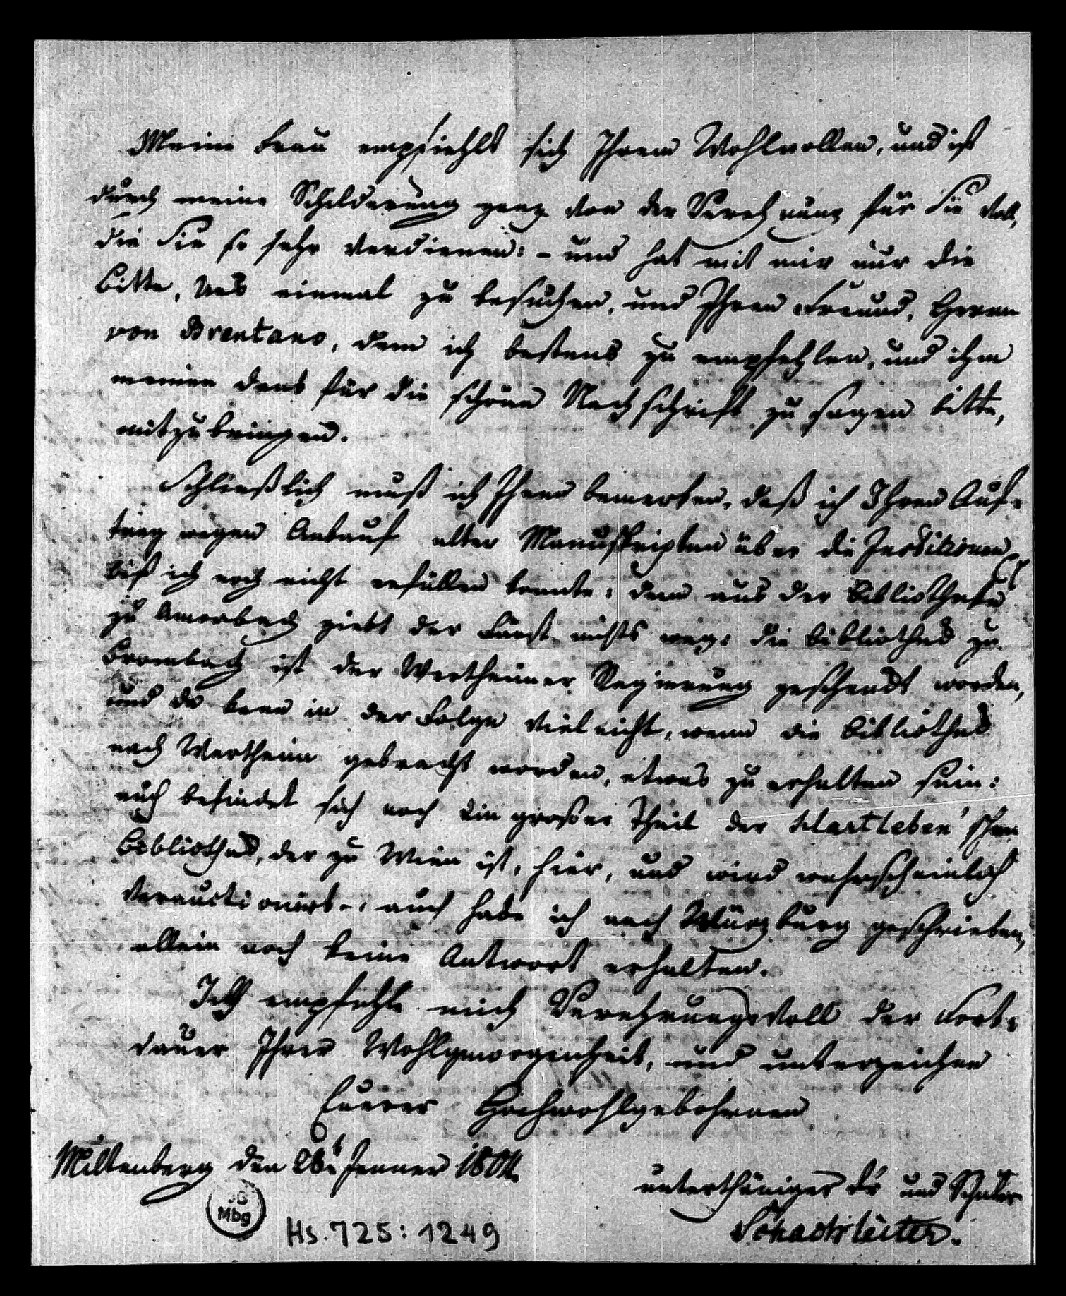 Meine Frau empfiehlt sich Ihrem Wohlwollen, und ist
durch meine Schilderung ganz von der Verehrung für Sie voll,
die Sie so sehr verdienen: – und hat mit mir nur die
Bitte, uns einmal zu besuchen, und Ihren Freund, Herrn
von Brentano, dem ich bestens zu empfehlen, und ihm
meinen Dank für die schöne Nachschrift zu sagen bitte,
mitzubringen.
Schließlich muß ich Ihnen bemerken, daß ich Ihren Auf-
trag wegen Ankauf alter Manuskripten über die
biß ich noch nicht erfüllen konnte; denn aus der Bibliotheke
zu Amorbach giebt der Fürst nichts weg: die Bibliothek zu
Brombach ist der Wertheimer Regierung geschenkt worden,
und da kann in der Folge vieleicht, wenn die Bibliothek
nach Wertheim gebracht worden, etwas zu erhalten sein:
auch befindet sich noch ein großer Theil der Hartleben'schen
Bibliothek, der zu Wien ist, hier, und wird wahrscheinlich
verauctionirt; auch habe ich nach Würzburg geschrieben,
allein noch keine Antwort erhalten.
Ich empfehle mich Verehrungsvoll der Fort-
dauer Ihrer Wohlgewogenheit, und unterzeichne
Euerer Hochwohlgebohrnen
Miltenberg den 28t Jenner 1804.
unterthäniger Dr und
Schachleiter.
Mbg
Hs. 725: 1249